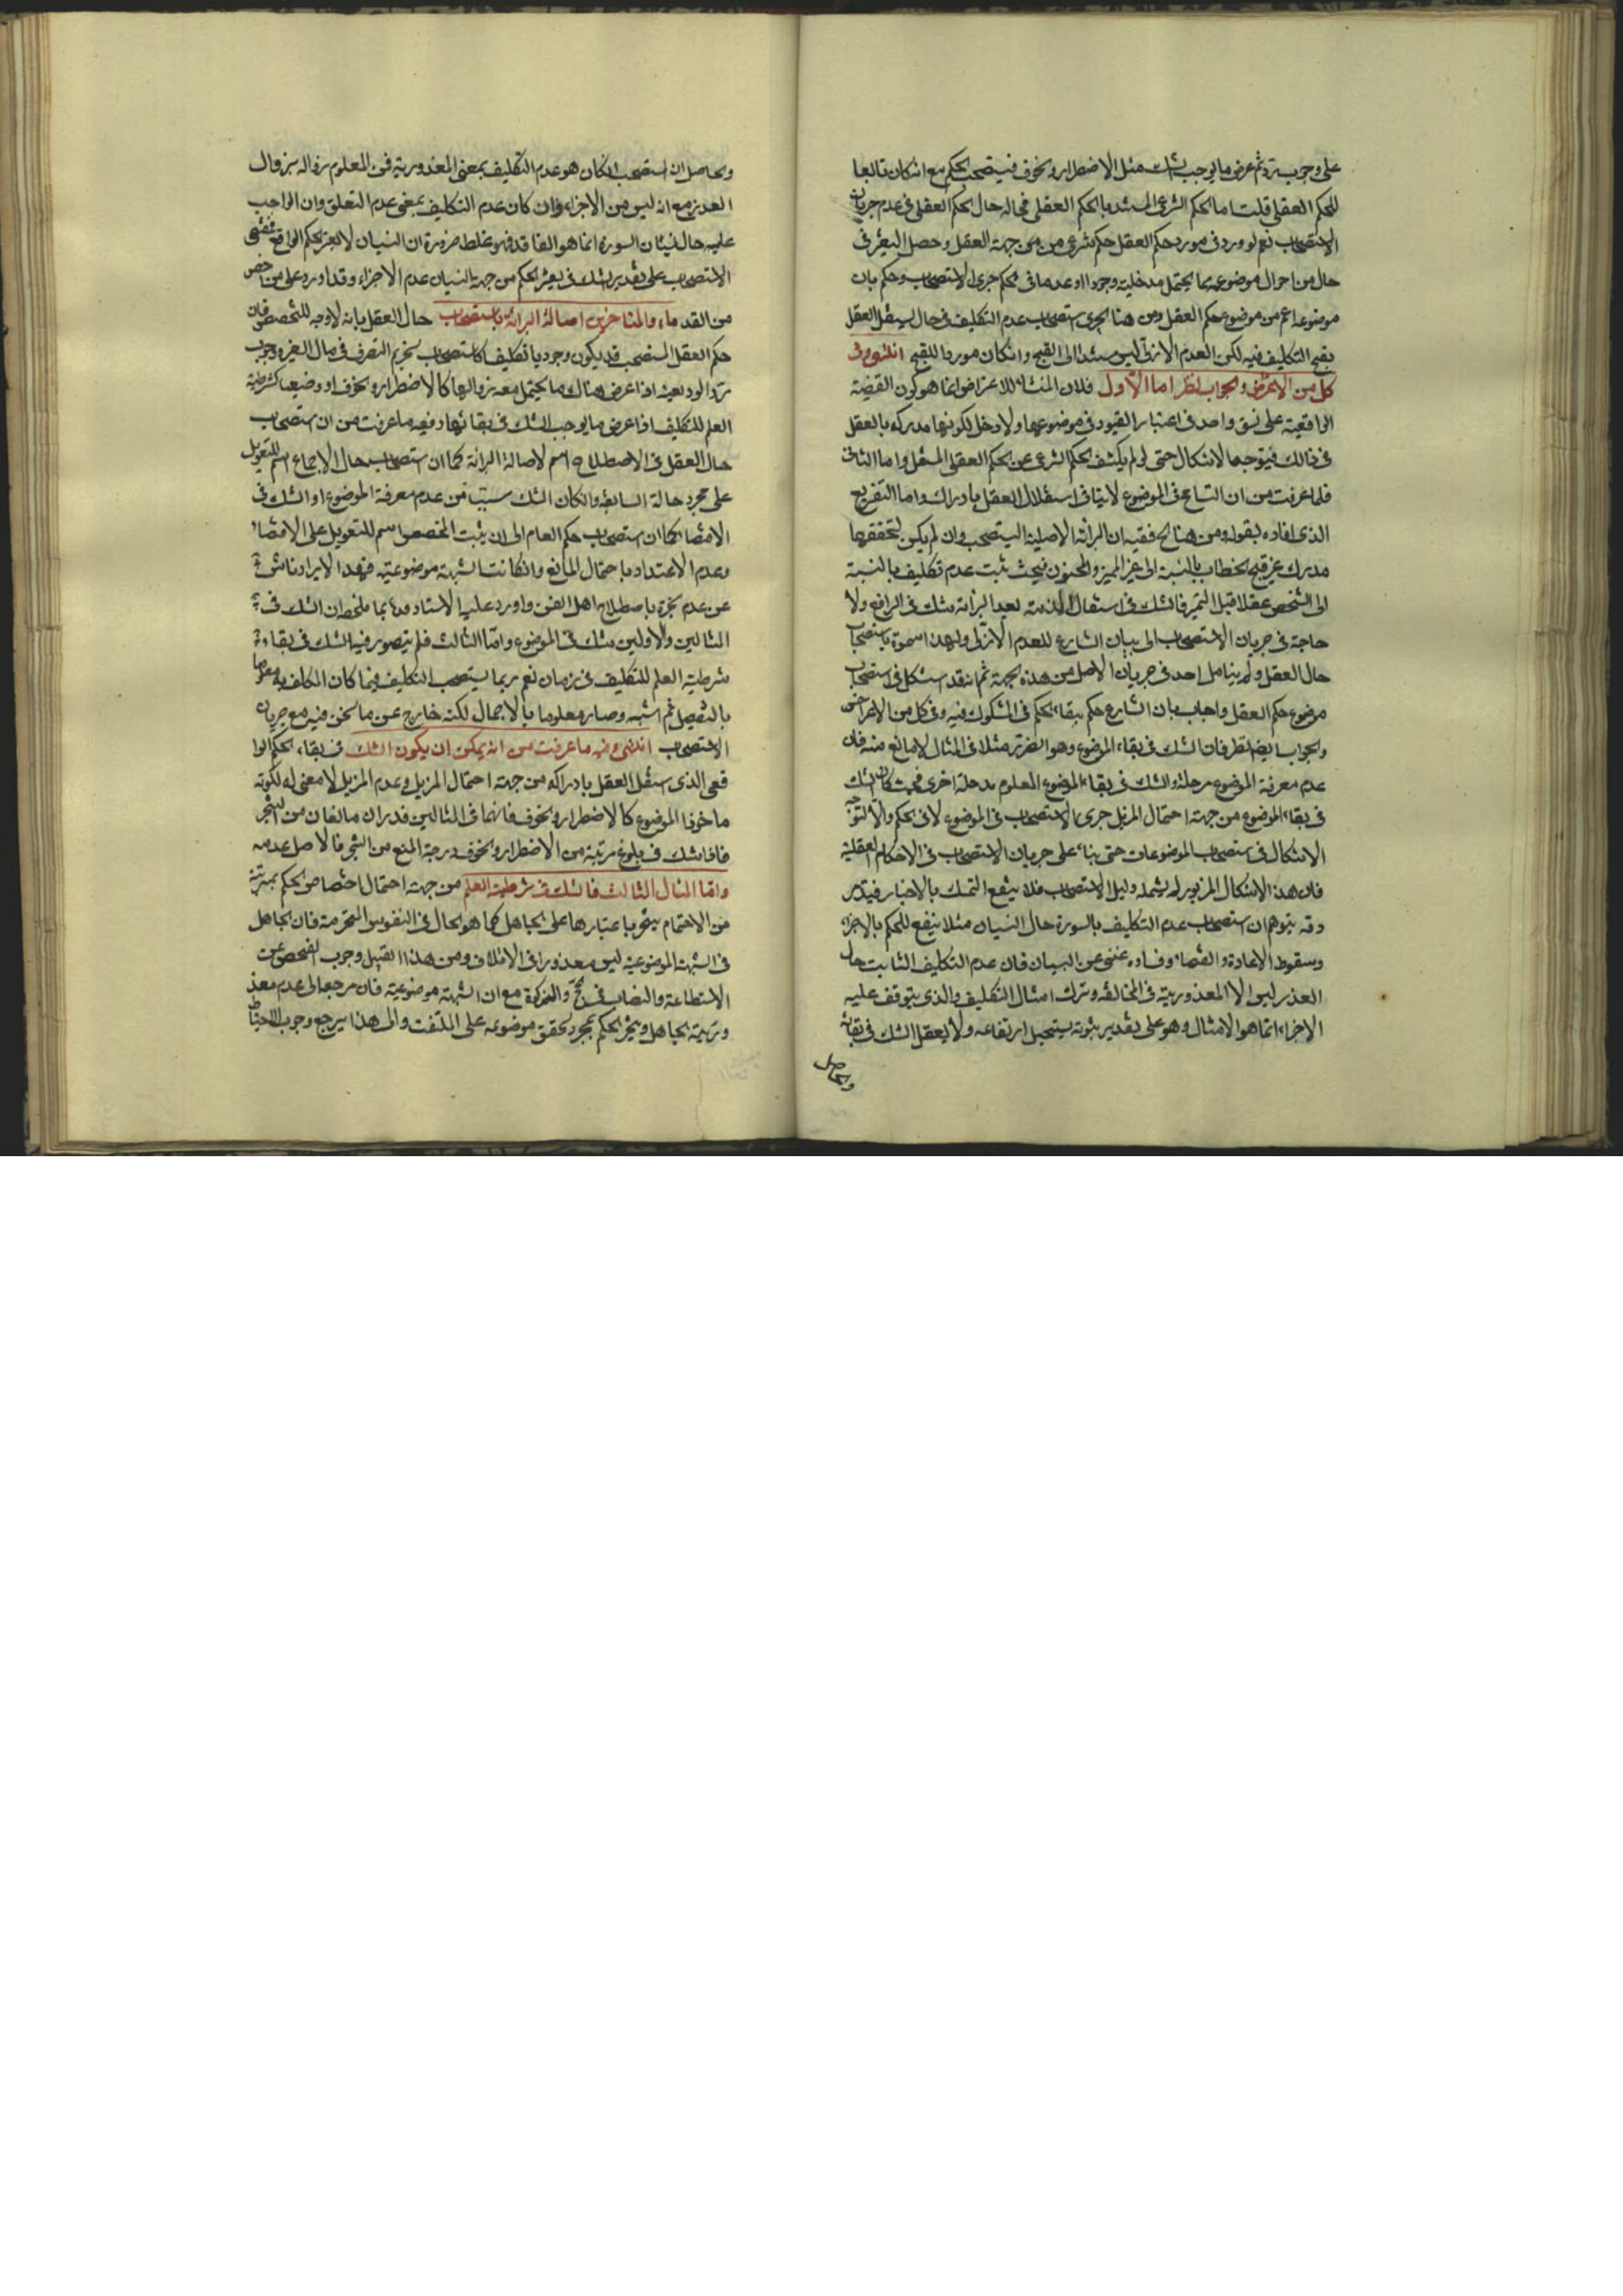 على وجوب رده ثم عرض ما يوجب الشك مثل الاضطرار والخوف فيستصحب الحكم مع انه كان تابعا
للحكم العقلى قلت اما الحكم الشرعى المستند بالحكم العقلى فحاله حال الحكم العقلى فى عدم جريان
الاستصحاب نعم لو ورد فى مورد حكم العقل حكم شرعى من غير جهة العقل وحصل التغير فى
حال من احوال موضوعه مما يحتمل مدخليته وجودا او عدما فى الحكم جرى الاستصحاب وحكم بان
موضوعه اعم من موضوع حكم العقل ومن هنا يجرى استصحاب عدم التكليف فى حال يستقل العقل
بقبح التكليف فيه لكن العدم الازلى ليس مستندا الى القبح وان كان موردا للقبح انتهى وفى
كل من الاعتراض والجواب نظر اما الاول فلان المنشأ للاعتراض انما هو كون القضية
الواقعية على نسق واحد فى اعتبار القيود فى موضوعها ولا دخل لكونها مدركه بالعقل
فى ذالك فيتوجه الاشكال حتى لو لم يكشف الحكم الشرعى عن الحكم العقلى المستقل واما الثانى
فلما عرفت من ان التسامح فى الموضوع لا ينافى استقلال العقل بادراك واما التفريع
الذى افاده بقوله ومن هنا الخ ففيه ان البرائة الاصلية المستصحب وان لم يكن لتحققها
مدرك غير قبح الخطاب بالنسبة الى غير المميز والمجنون فحيث ثبت عدم تكليف بالنسبة
الى الشخص عقلا قبل التميز فالشك فى اشتغال الذمة بعد البرائة شك فى الرافع ولا
حاجة فى جريان الاستصحاب الى بيان الشارع للعدم الازلى ولهذا سموه باستصحاب
حال العقل ولم يتامل احد فى جريان الاصل من هذه الجهة ثم انه قد استشكل فى استصحاب
موضوع حكم العقل واجاب بان الشارع حكم ببقاء الحكم فى المشكوك فيه وفى كل من الاعتراض
والجواب ايضا نظر فان الشك فى بقاء الموضوع وهو الضرر مثلا فى المثال لا مانع منه فان
عدم معرفة الموضوع مرحلة والشك فى بقاء الموضوع المعلوم مرحلة اخرى فحيث كان الشك
فى بقاء الموضوع من جهة احتمال المزيل جرى الاستصحاب فى الموضوع لا فى الحكم والا لتوجه
الاشكال فى استصحاب الموضوعات حتى بناء على جريان الاستصحاب فى الاحكام العقلية
فان هذا الاشكال المزبور لم يشمله دليل الاستصحاب فلا ينفع التمسك بالاخبار فتدبر
وقد يتوهم ان استصحاب عدم التكليف بالسورة حال النسيان مثلا ينفع للحكم بالاجزاء
وسقوط الاعادة والقضاء وفساده غنى عن البيان فان عدم التكليف الثابت حال
العذر ليس الا المعذورية فى المخالفة وترك امتثال التكليف والذى يتوقف عليه
الاجزاء انما هو الامتثال وهو على تقدير ثبوته يستحيل ارتفاعه ولا يعقل الشك فى بقائه
والحاصل
والحاصل ان المستصحب ان كان هو عدم التكليف بمعنى المعذورية فمن المعلوم زواله بزوال
العذر مع انه ليس من الاجزاء وان كان عدم التكليف بمعنى عدم التعلق وان الواجب
عليه حال نسيان السورة انما هو الفاقد فهو غلط ضرورة ان النسيان لا يغير الحكم الواقعى فمقتضى
الاستصحاب على تقدير الشك فى تغير الحكم من جهة النسيان عدم الاجزاء وقد اورد على من خص
من القدماء والمتاخرين اصالة البرائة باستصحاب حال العقل بانه لا وجه للتخصيص فان
حكم العقل المستصحب قد يكون وجوديا تكليفيا كاستصحاب تحريم التصرف فى مال الغير ووجوب
رد الوديعة اذا عرض هناك ما يحتمل معه زوالها كالاضطرار والخوف او وضعيا كشرطية
العلم للتكليف اذا عرض ما يوجب الشك فى بقائها وفيه ما عرفت من ان استصحاب
حال العقل فى الاصطلاح اسم لاصالة البرائة كما ان استصحاب حال الاجماع اسم للتعويل
على مجرد حالة السابقة وان كان الشك مسببا عن عدم معرفة الموضوع او الشك فى
الاقتضاء كما ان استصحاب حكم العام الى ان يثبت المخصص اسم للتعويل على الاقتضاء
وعدم الاعتداد باحتمال المانع وان كانت الشبهة موضوعية فهذا الايراد ناش
عن عدم الخبرة باصطلاح اهل الفن واورد عليه الاستاد بما ملخصه ان الشك فى
المثالين الاولين شك فى الموضوع واما الثالث فلم يتصور فيه الشك فى بقاء
شرطية العلم للتكليف فى زمان نعم ربما يستصحب التكليف فيما كان المكلف به معلوما
بالتفصيل ثم اشتبه وصار معلوما بالاجمال لكنه خارج عن ما نحن فيه مع جريان
الاستصحاب انتهى وفيه ما عرفت من انه يمكن ان يكون الشك فى بقاء الحكم الوا
قعى الذى استقل العقل بادراكه من جهة احتمال المزيل وعدم المزيل لا معنى له لكونه
ماخوذا الموضوع كالاضطرار والخوف فانهما فى المثالين قدر ان مانعان من التنجز
فاذا شك فى بلوغ مرتبة من الاضطرار والخوف درجة المنع من التنجز فالاصل عدمه
واما المثال الثالث فالشك فى شرطية العلم من جهة احتمال اختصاص الحكم بمرتبة
من الاهتمام يتنجز باعتبارها على الجاهل كما هو الحال فى النفوس المحترمة فان الجاهل
فى الشبهة الموضوعية ليس معذورا فى الاتلاف ومن هذا القبيل وجوب الفحص عن
الاستطاعة والنصاب فى الحج والزكوة مع ان الشبهة موضوعية فان مرجعه الى عدم معذ
ورية الجاهل وتنجز الحكم بمجرد تحقق موضوعه على الملتفت والى هذا يرجع وجوب الاحتياط